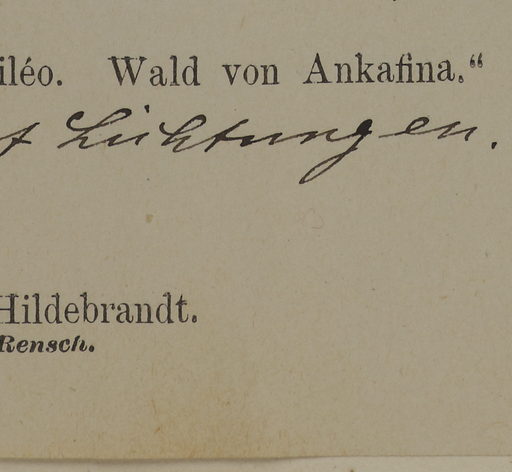 iléo. Wald von Ankafina.“
f Lichtungen.
Hildebrandt.
Rensch.